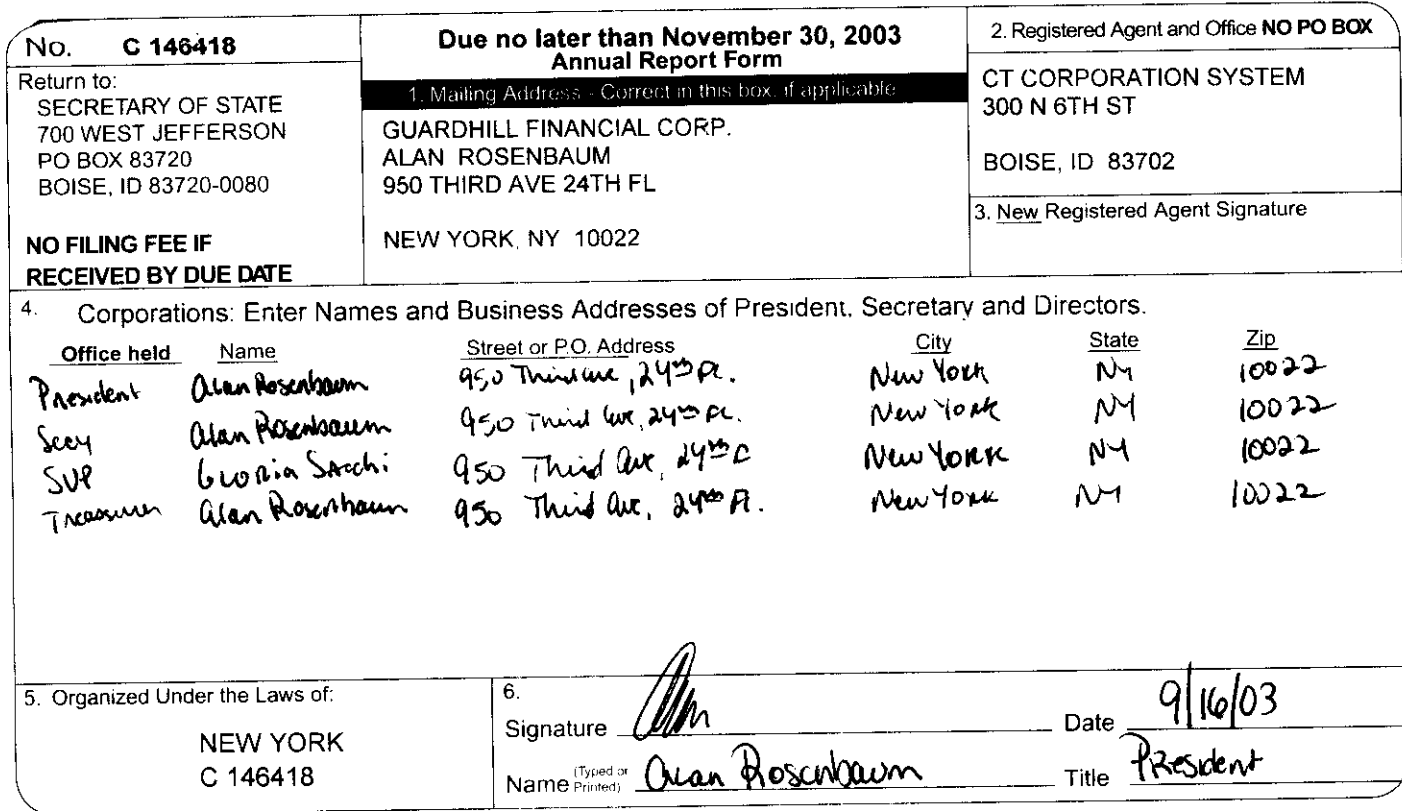 No. C 146418
Return to:
SECRETARY OF STATE
700 WEST JEFFERSON
PO BOX 83720
BOISE, ID 83720-0080
NO FILING FEE IF
RECEIVED BY DUE DATE
Due no later than November 30, 2003
Annual Report Form
1. Mailing Address - Correct in this box, if applicable
GUARDHILL FINANCIAL CORP.
ALAN ROSENBAUM
950 THIRD AVE 24TH FL
NEW YORK, NY 10022
2. Registered Agent and Office NO PO BOX
CT CORPORATION SYSTEM
300 N 6TH ST
BOISE, ID 83702
3. New Registered Agent Signature
4. Corporations: Enter Names and Business Addresses of President, Secretary and Directors.
Office held Name Street or P.O. Address City State Zip
President Alan Rosenbaum 950 Third Ave, 24th Fl. New York NY 10022
Secy Alan Rosenbaum 950 Third Ave, 24th Fl. New York NY 10022
SVP Gloria Sacchi 950 Third Ave, 24th New York NY 10022
Treasurer Alan Rosenbaum 950 Third Ave, 24th Fl. New York NY 10022
5. Organized Under the Laws of:
NEW YORK
C 146418
6.
Signature Date 9/16/03
Name (Typed or Printed) Alan Rosenbaum Title President